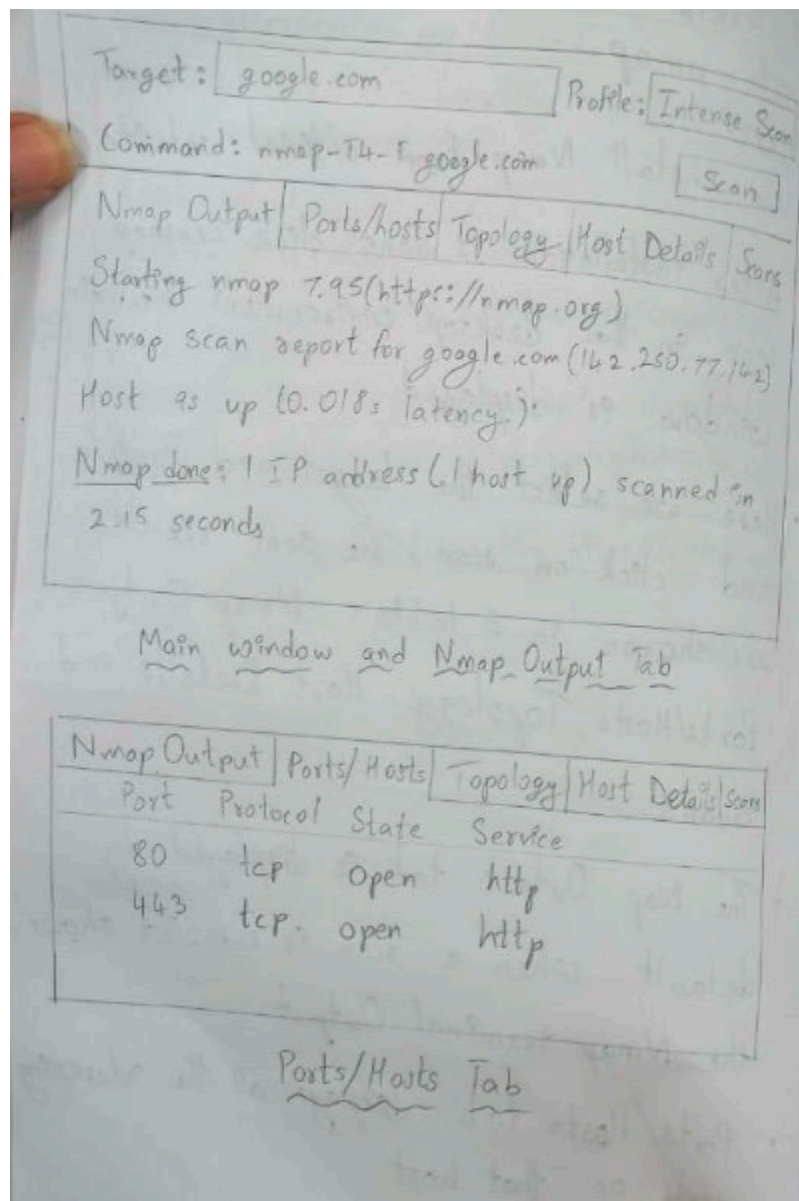 Target: google.com Profile: Intense Scan
Command: nmap-T4-F google.com Scan
Nmap Output Ports/hosts Topology Host Details Scans
Starting nmap 7.95(https://nmap.org)
Nmap scan report for google.com (142.250.77.142)
Host is up (0.018s latency.).
Nmap done: 1 IP address (1 host up) scanned in
2.15 seconds
Main window and Nmap Output Tab
Nmap Output Ports/Hosts Topology Host Details Scans
Port Protocol State Service
80 tcp Open http
443 tcp. open http
Ports/Hosts Tab